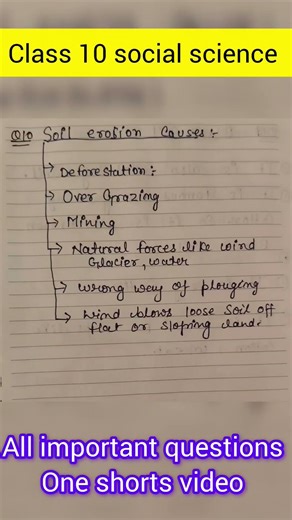 Class 10 social science
Q10 Soil erosion Causes:-
→ Deforestation:-
→ Over Grazing
→ Mining
→ Natural forces like wind
Glacier, water
→ wrong way of plouging
→ Wind blows loose soil off
flat or sloping land.
All important questions
One shorts video